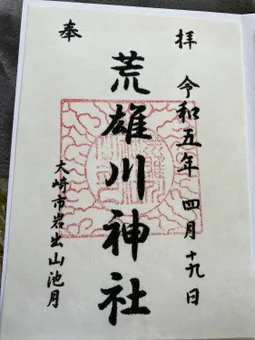 奉拝
令和五年 四月十九日
荒雄川神社
大崎市岩出山池月